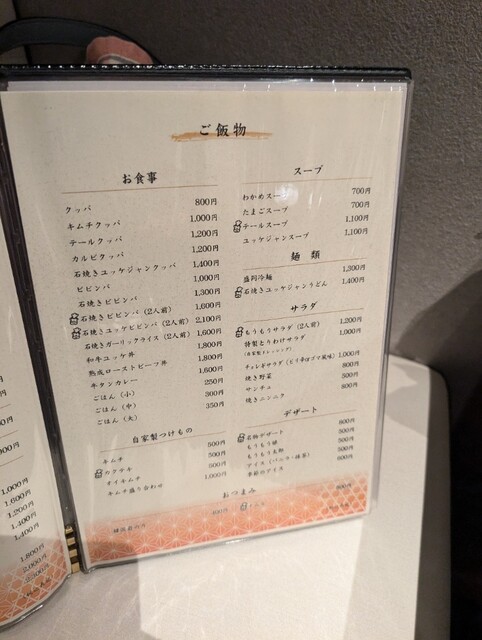 ご飯物
お食事
クッパ 800円
キムチクッパ 1,000円
テールクッパ 1,200円
カルビクッパ 1,200円
石焼きユッケジャンクッパ 1,400円
ビビンバ 1,000円
石焼きビビンバ 1,300円
石焼きビビンバ(2人前) 1,600円
石焼きユッケビビンバ(2人前) 2,100円
石焼きガーリックライス(2人前) 1,600円
和牛ユッケ丼 1,800円
熟成ローストビーフ丼 1,800円
牛タンカレー 1,600円
ごはん(小) 250円
ごはん(中) 300円
ごはん(大) 350円
自家製つけもの
キムチ 500円
カクテキ 500円
オイキムチ
キムチ盛り合わせ 1,000円
スープ
わかめスープ 700円
たまごスープ 700円
テールスープ 1,100円
ユッケジャンスープ 1,100円
麺類
盛岡冷麺 1,300円
石焼きユッケジャンうどん 1,400円
サラダ
もうもうサラダ(2人前) 1,200円
特製とりわけサラダ 1,000円
(自家製ドレッシング)
チョレギサラダ(ピリ辛ゴマ風味) 1,000円
焼き野菜 800円
サンチュ 500円
焼きニンニク 800円
デザート
名物デザート
もうもう焼 500円
もうもう太郎 500円
アイス(バニラ・抹茶) 500円
季節のアイス 600円
おつまみ